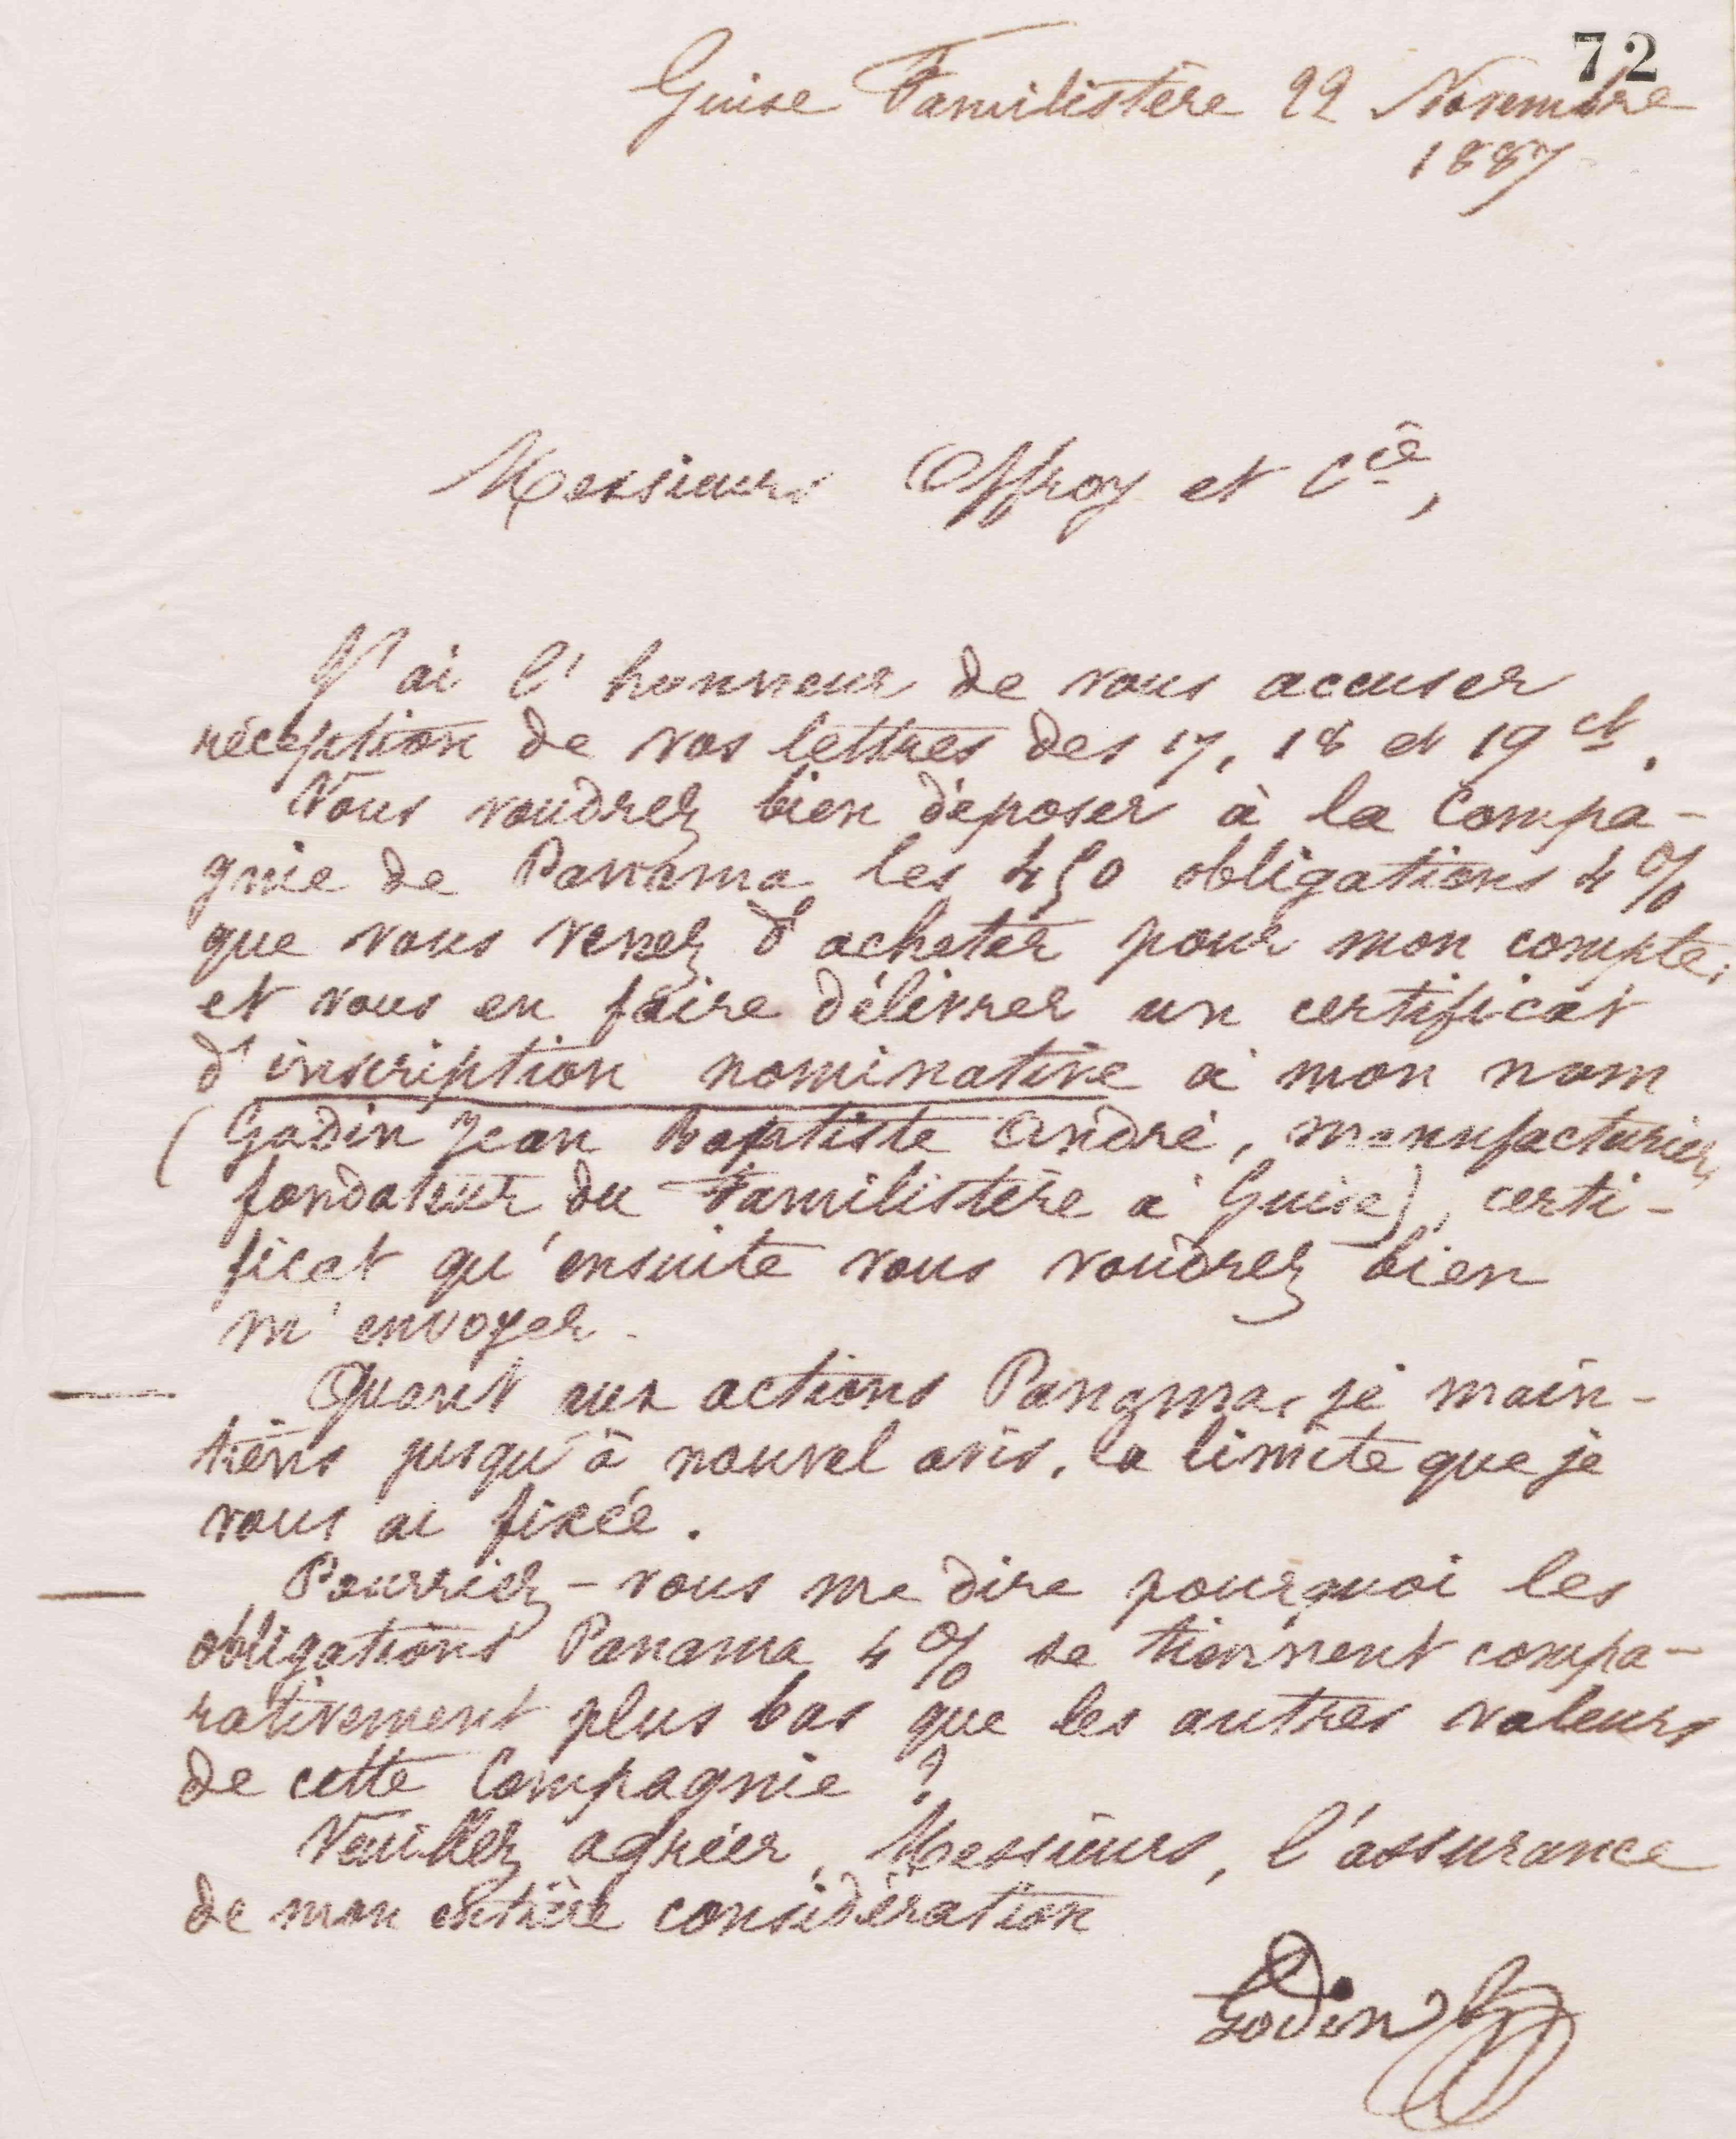 72
Guise Familistère 22 Novembre
1887
Messieurs Offroy et Cie,
J'ai l'honneur de vous accuser
réception de vos lettres des 17, 18 et 19 ct.
Vous voudrez bien déposer à la Compa-
gnie de Panama les 450 obligations 4 %
que vous venez d'acheter pour mon compte,
et vous en faire délivrer un certificat
d'inscription nominative à mon nom
(Godin Jean Baptiste André, manufacturier,
fondateur du Familistère à Guise), certi-
ficat qu'ensuite vous voudrez bien
m'envoyer.
Quant aux actions Panama, je main-
tiens jusqu'à nouvel avis, la limite que je
vous ai fixée.
Pourriez-vous me dire pourquoi les
obligations Panama 4 % se tiennent compa-
rativement plus bas que les autres valeurs
de cette Compagnie ?
Veuillez agréer, Messieurs, l'assurance
de mon entière considération
Godin